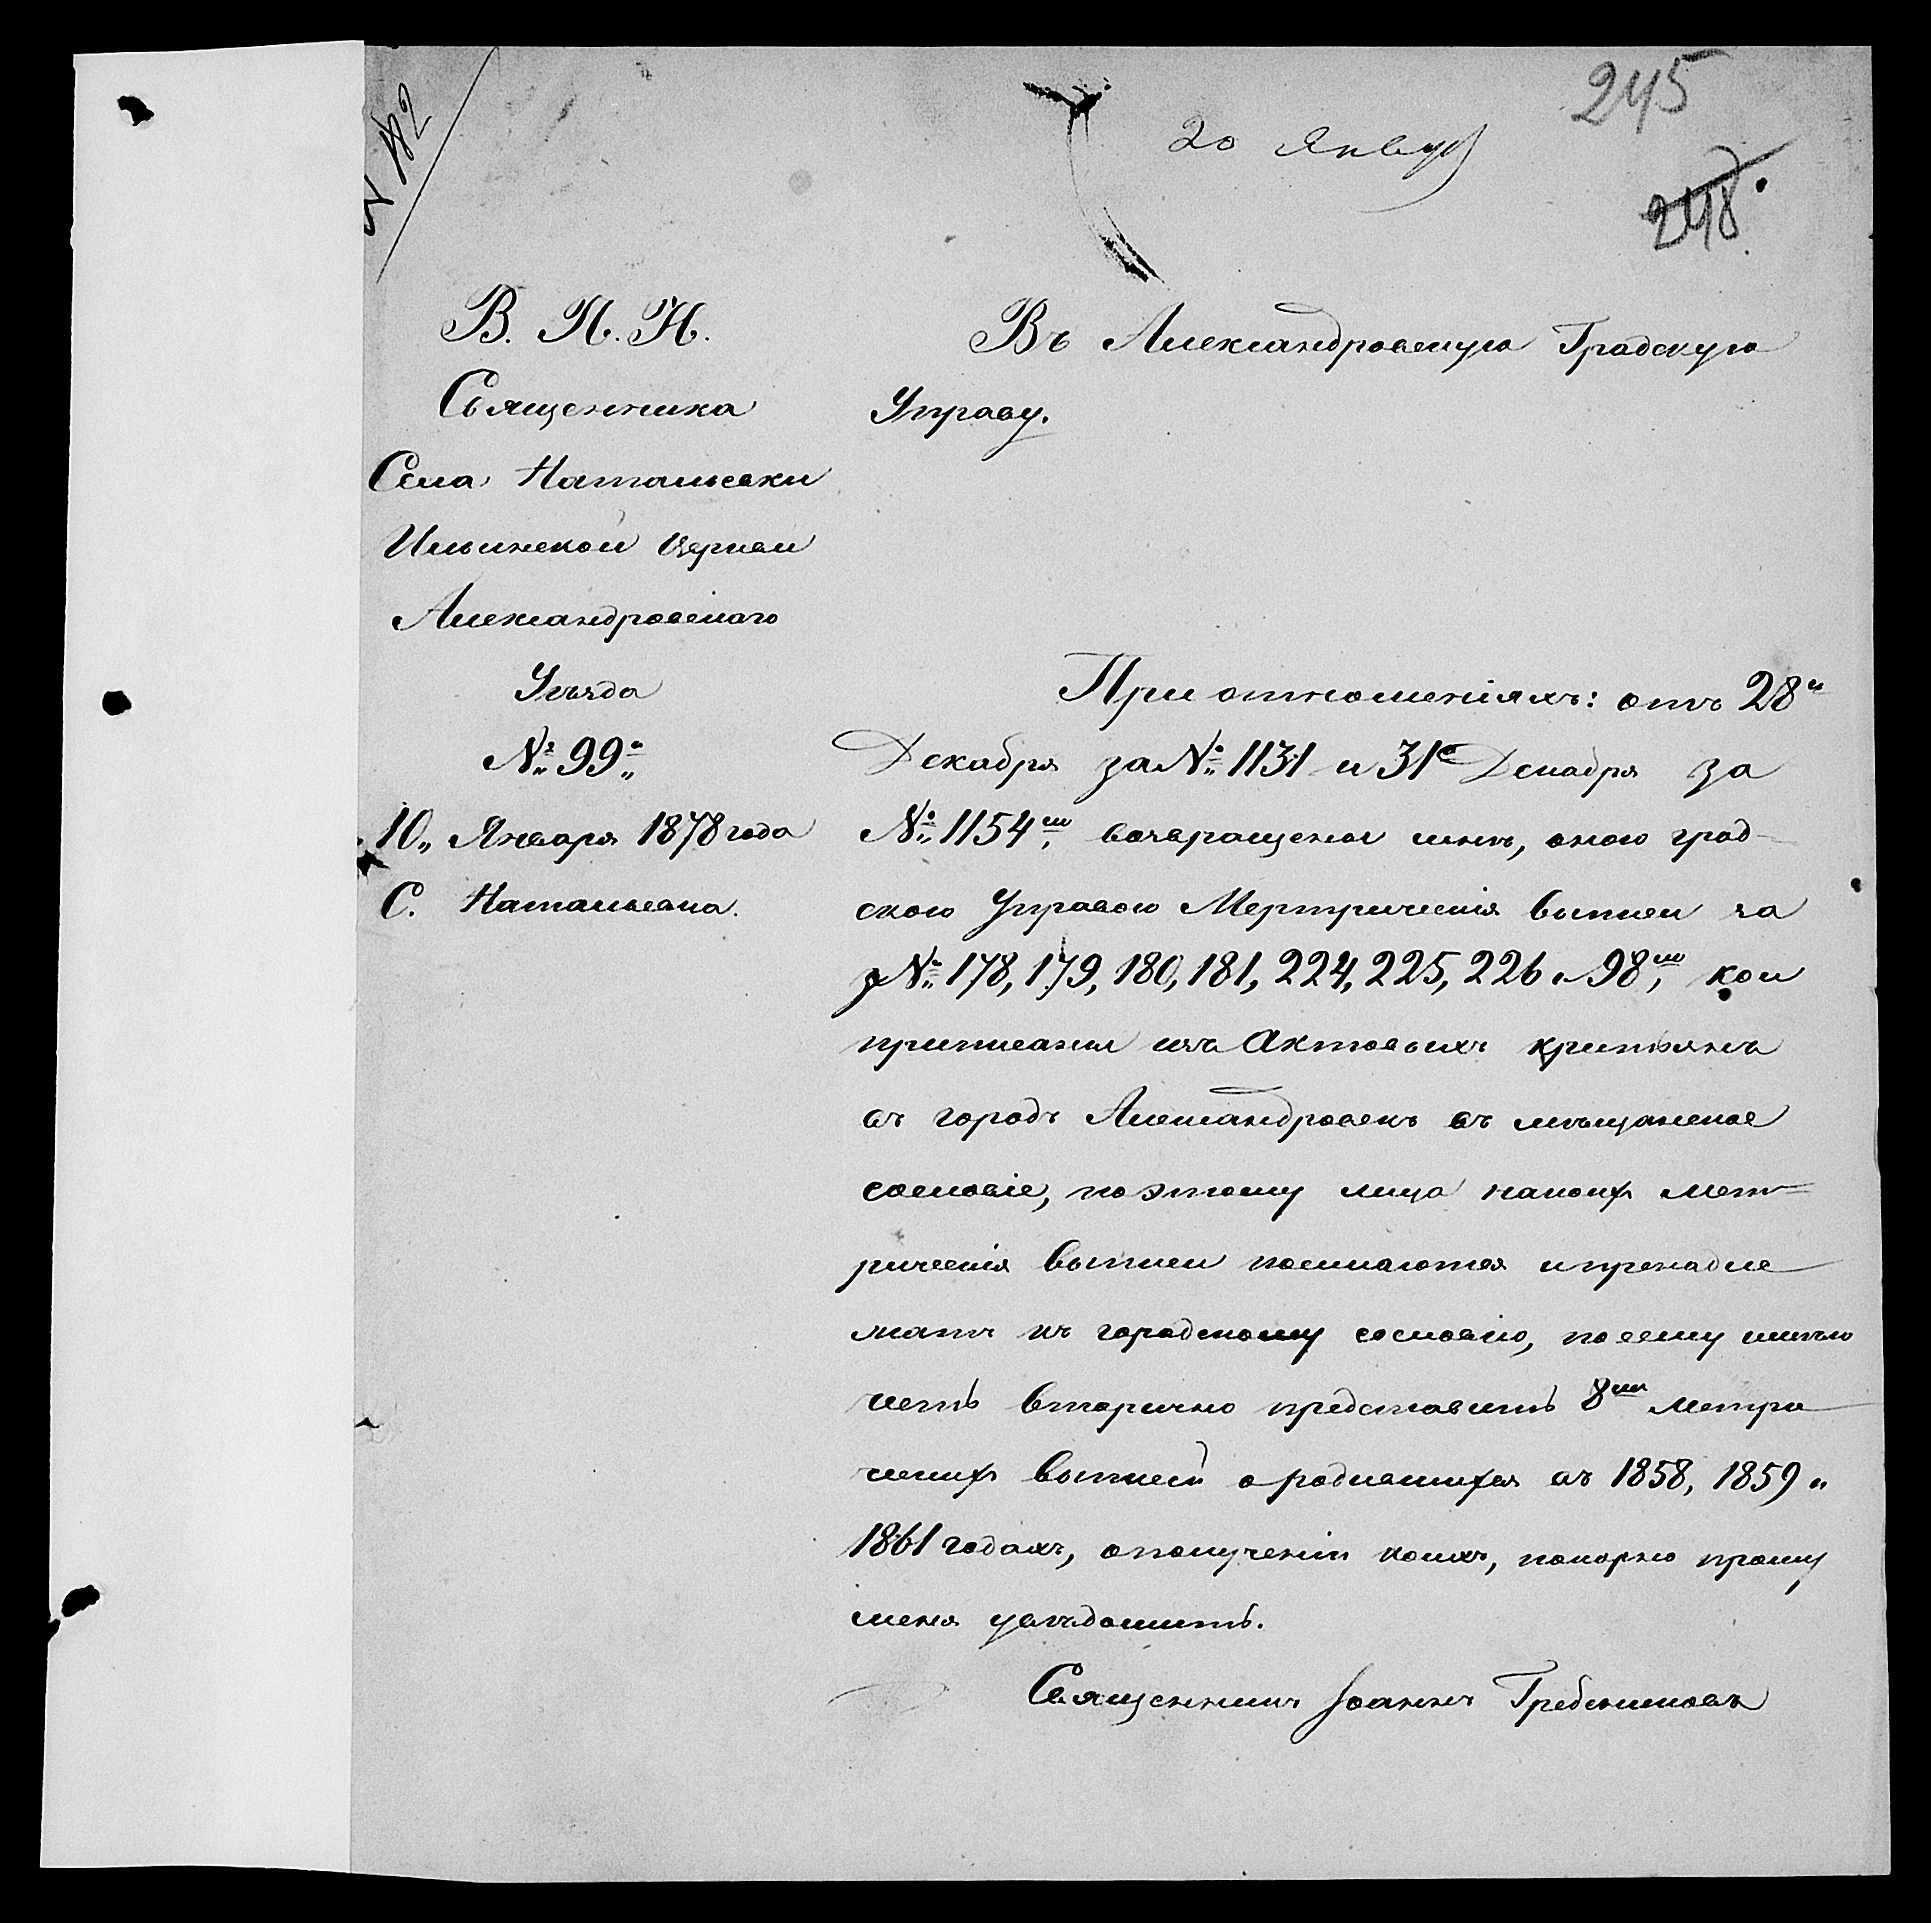 245
20 Январ
248.
№ 112
В. П. И.
Священника
Села Натальевки
Ильинской церкви
Александровскаго
Уѣзда
№ 99
10„ Января 1878 года
С. Натальевка.
Въ Александровскую Градскую
Управу.
При отношеніяхъ: отъ 28го
Декабря за № 1131 и 31го Декабря за
№ 1154м, возвращены мнѣ, оною град-
скою Управою Мертрическія выписи за
№ 178, 179, 180, 181, 224, 225, 226 и 98м, кои
приписаны изъ Актовыхъ критьянъ
въ городъ Александровскъ въ мѣщанское
сословіе, поэтому лица на коихъ мет-
рическія выписи посылаются и пренадле
жатъ къ городскому сословію, посему имѣю
честь вторично представить 8м метри
ческихъ выписей о родившихся въ 1858, 1859 и
1861 годахъ, о полученіи коихъ, покорно прошу
меня увѣдомить.
Священникъ Іоаннъ Гребенниковъ